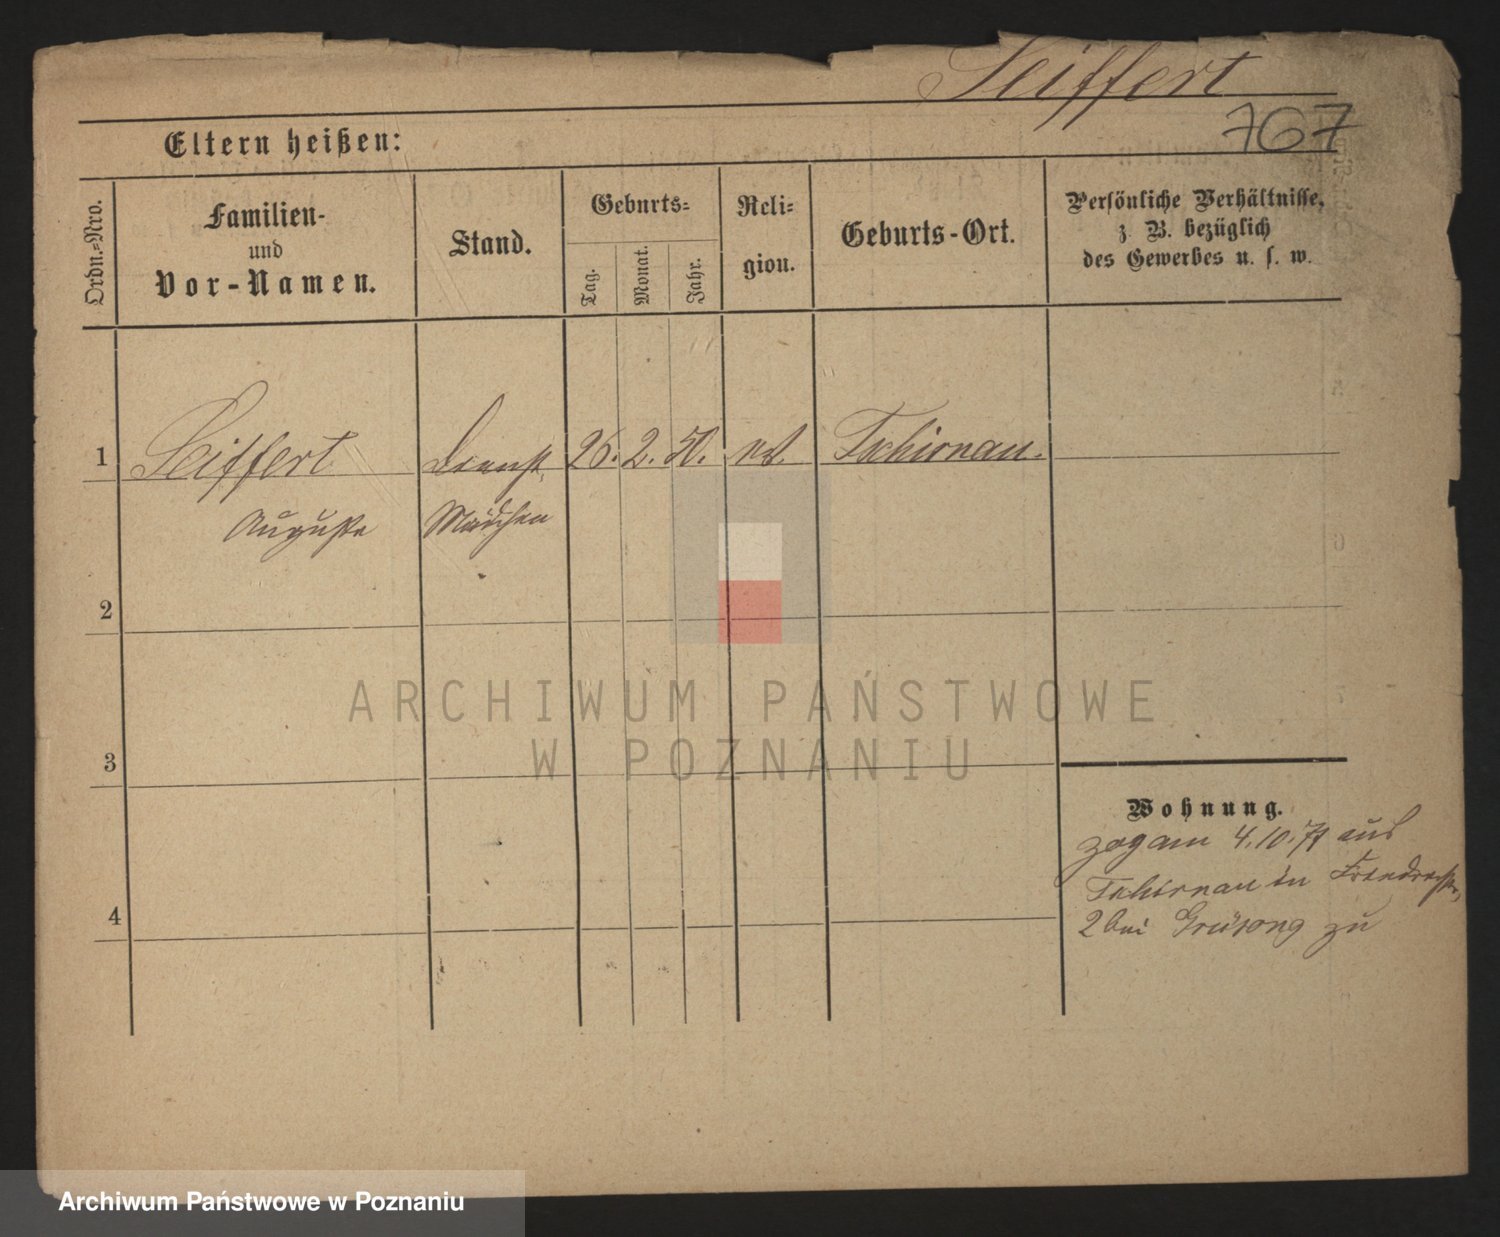 Seiffert
767
Eltern heißen:
Ordn.=Nro.
Familien-
und
Vor-Namen.
Stand.
Geburts=
Tag.
Monat.
Jahr.
Reli=
gion.
Geburts-Ort.
Persönliche Verhältnisse,
z. B. bezüglich
des Gewerbes u. s. w.
1 Seiffert Dienst 26. 2. 50. ev. Tschirnau.
Auguste Mädchen
2
3
4
Wohnung.
zog am 4.10.71 aus
Tschirnau in
2 bei zu
ARCHIWUM PAŃSTWOWE
W POZNANIU
Archiwum Państwowe w Poznaniu